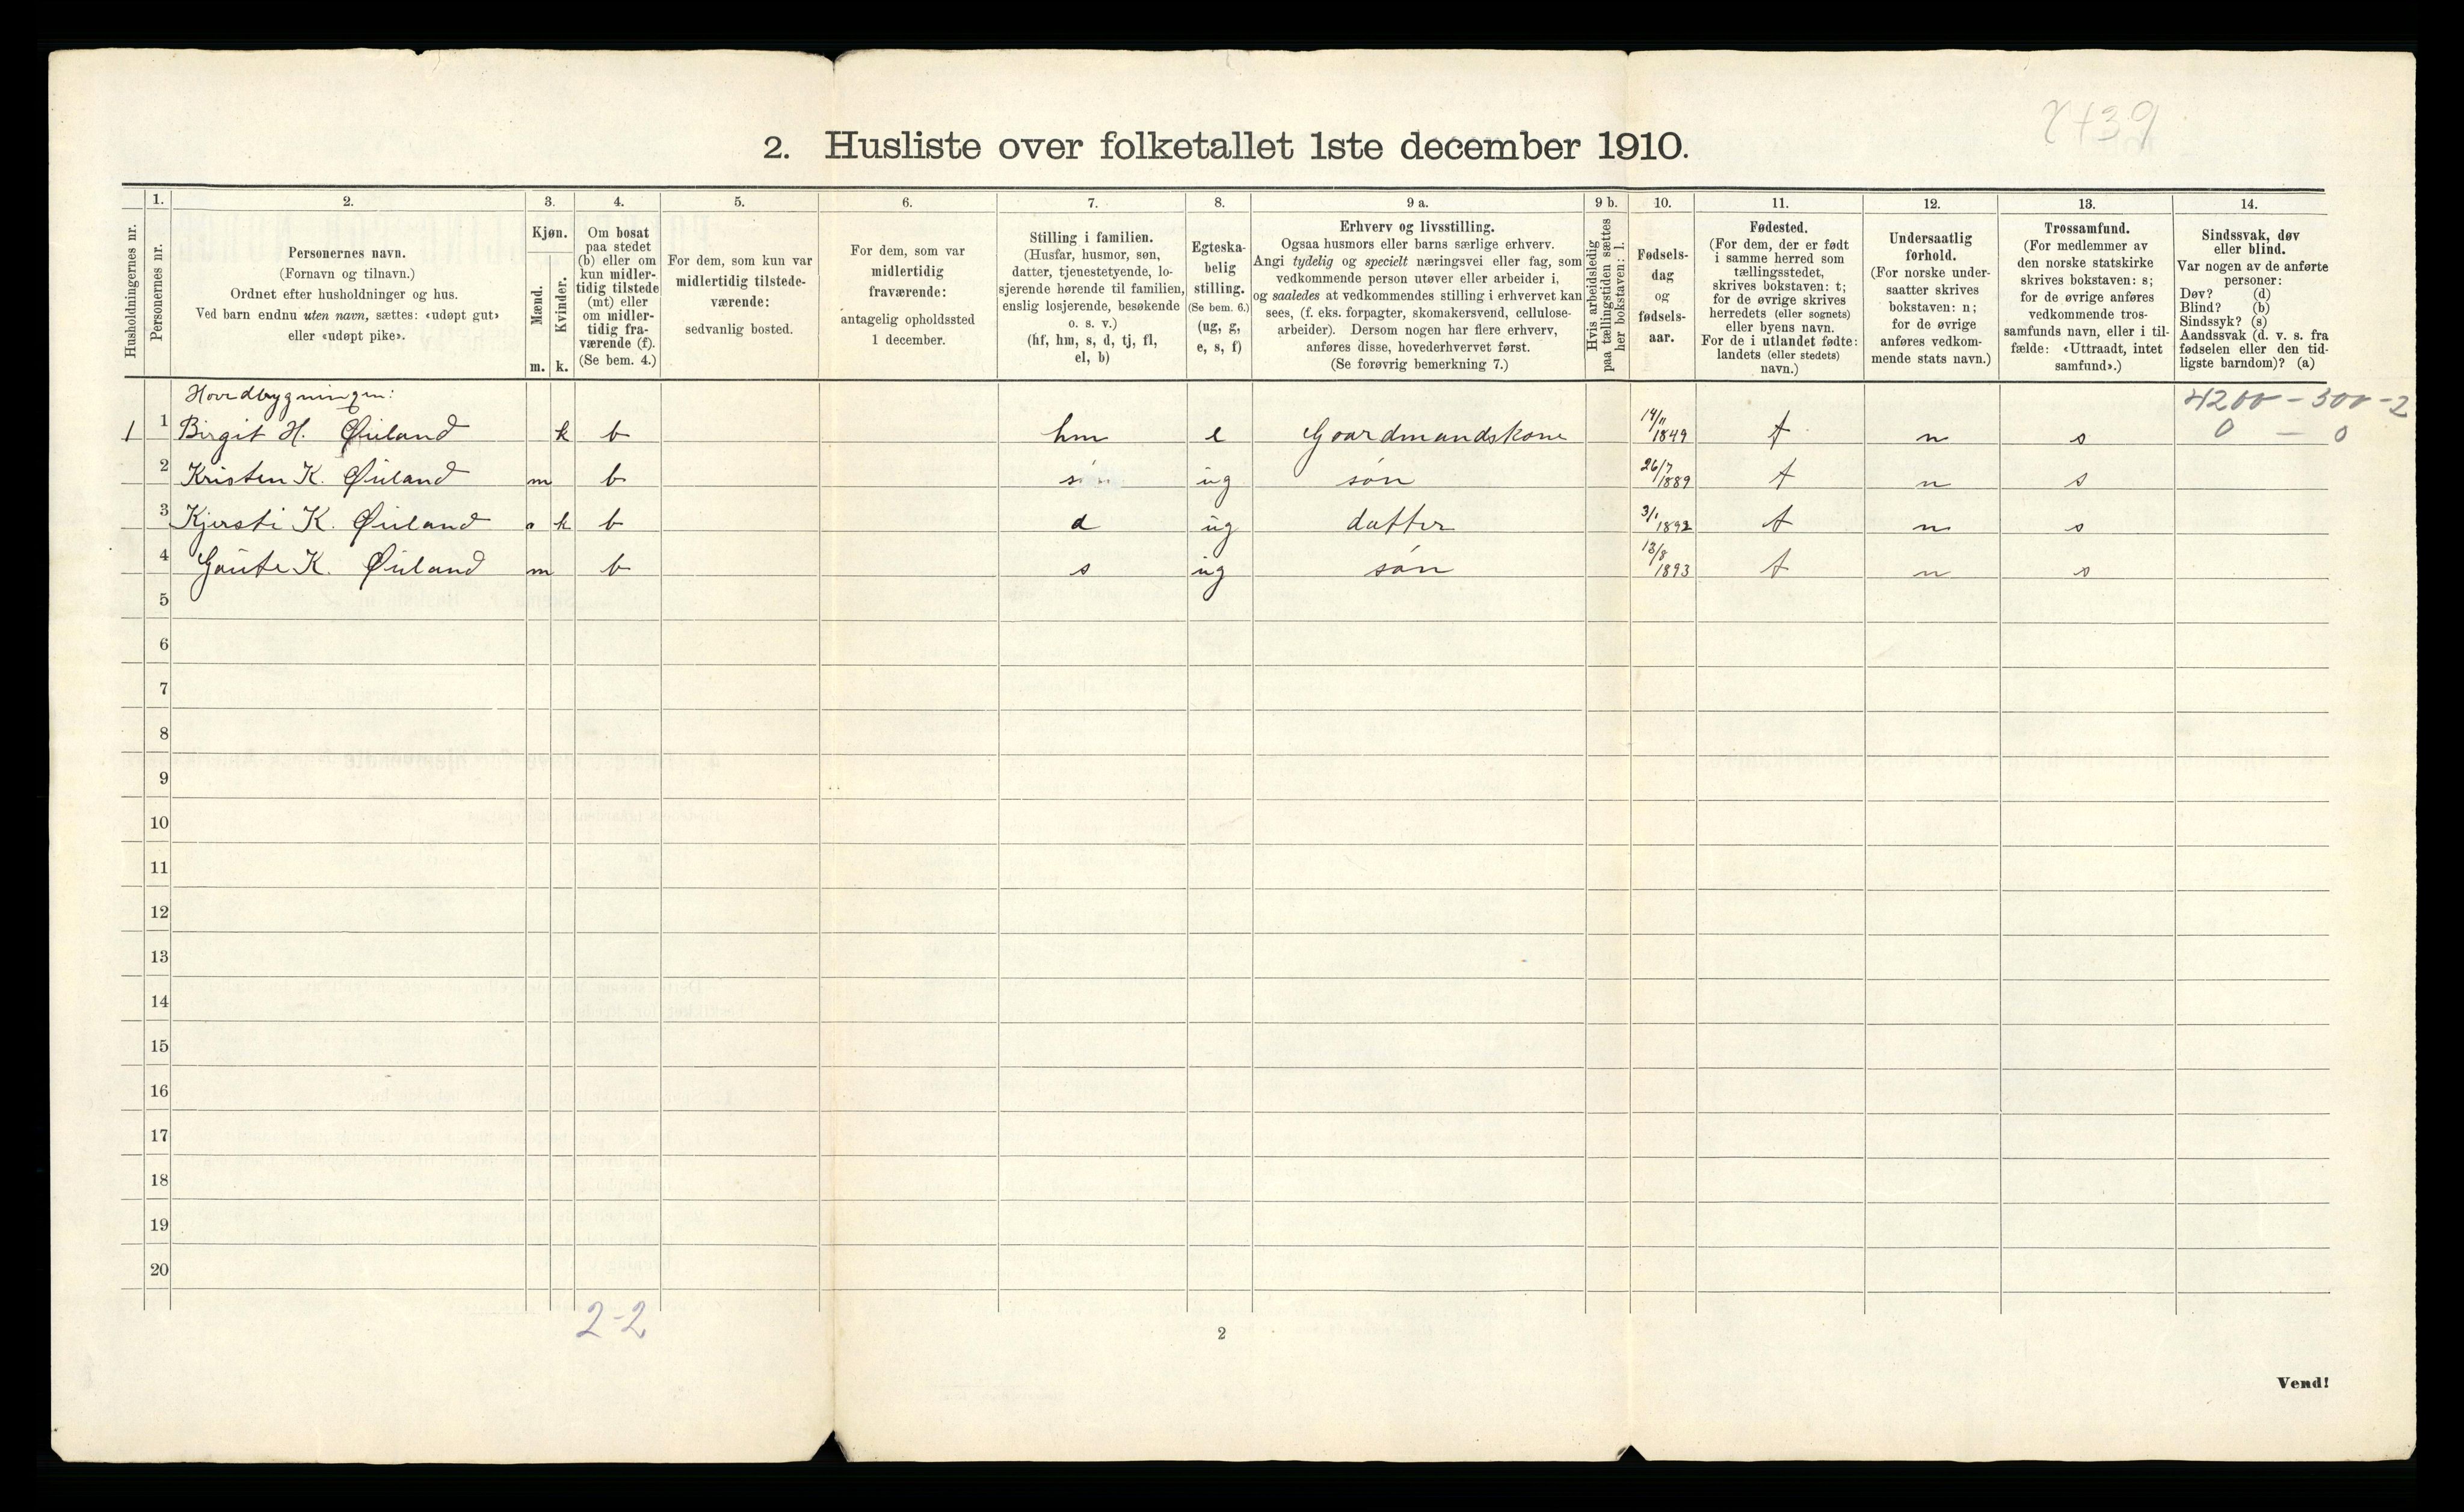 2. Husliste over folketallet 1ste december 1910.
Husholdningernes nr.
1.
Personernes nr.
2.
Personernes navn.
(Fornavn og tilnavn.)
Ordnet efter husholdninger og hus.
Ved barn endnu uten navn, sættes: «udøpt gut»
eller «udøpt pike».
3.
Kjøn.
Mænd.
Kvinder.
m. k.
4.
Om bosat
paa stedet
(b) eller om
kun midler-
tidig tilstede
(mt) eller
om midler-
tidig fra-
værende (f).
(Se bem. 4.)
5.
For dem, som kun var
midlertidig tilstede-
værende:
sedvanlig bosted.
6.
For dem, som var
midlertidig
fraværende:
antagelig opholdssted
1 december.
7.
Stilling i familien.
(Husfar, husmor, søn,
datter, tjenestetyende, lo-
sjerende hørende til familien,
enslig losjerende, besøkende
o. s. v.)
(hf, hm, s, d, tj, fl,
el, b)
8.
Egteska-
belig
stilling.
(Se bem. 6.)
(ug, g,
e, s, f)
9 a.
Erhverv og livsstilling.
Ogsaa husmors eller barns særlige erhverv.
Angi tydelig og specielt næringsvei eller fag, som
vedkommende person utøver eller arbeider i,
og saaledes at vedkommendes stilling i erhvervet kan
sees, (f. eks. forpagter, skomakersvend, cellulose-
arbeider). Dersom nogen har flere erhverv,
anføres disse, hovederhvervet først.
(Se forøvrig bemerkning 7.)
9 b.
Hvis arbeidsledig
paa tællingstiden sættes
her bokstaven: l.
10.
Fødsels-
dag
og
fødsels-
aar.
11.
Fødested.
(For dem, der er født
i samme herred som
tællingsstedet,
skrives bokstaven: t;
for de øvrige skrives
herredets (eller sognets)
eller byens navn.
For de i utlandet fødte:
landets (eller stedets)
navn.)
12.
Undersaatlig
forhold.
(For norske under-
saatter skrives
bokstaven: n;
for de øvrige
anføres vedkom-
mende stats navn.)
13.
Trossamfund.
(For medlemmer av
den norske statskirke
skrives bokstaven: s;
for de øvrige anføres
vedkommende tros-
samfunds navn, eller i til-
fælde: «Uttraadt, intet
samfund».)
14.
Sindssvak, døv
eller blind.
Var nogen av de anførte
personer:
Døv? (d)
Blind? (b)
Sindssyk? (s)
Aandssvak (d. v. s. fra
fødselen eller den tid-
ligste barndom)? (a)
Hovedbygningen:
4200 - 300 - 2
1 1 Birgit H. Øiland k b hm e Gaardmandskone 14/11 1849 t n s 0 - 0
2 Kristen K. Øiland m b s ug søn 26/7 1889 t n s
3 Kjersti K. Øiland k b d ug datter 3/1 1892 t n s
4 Gaute K. Øiland m b s ug søn 13/8 1893 t n s
5
6
7
8
9
10
11
12
13
14
15
16
17
18
19
20
2-2
2
Vend!